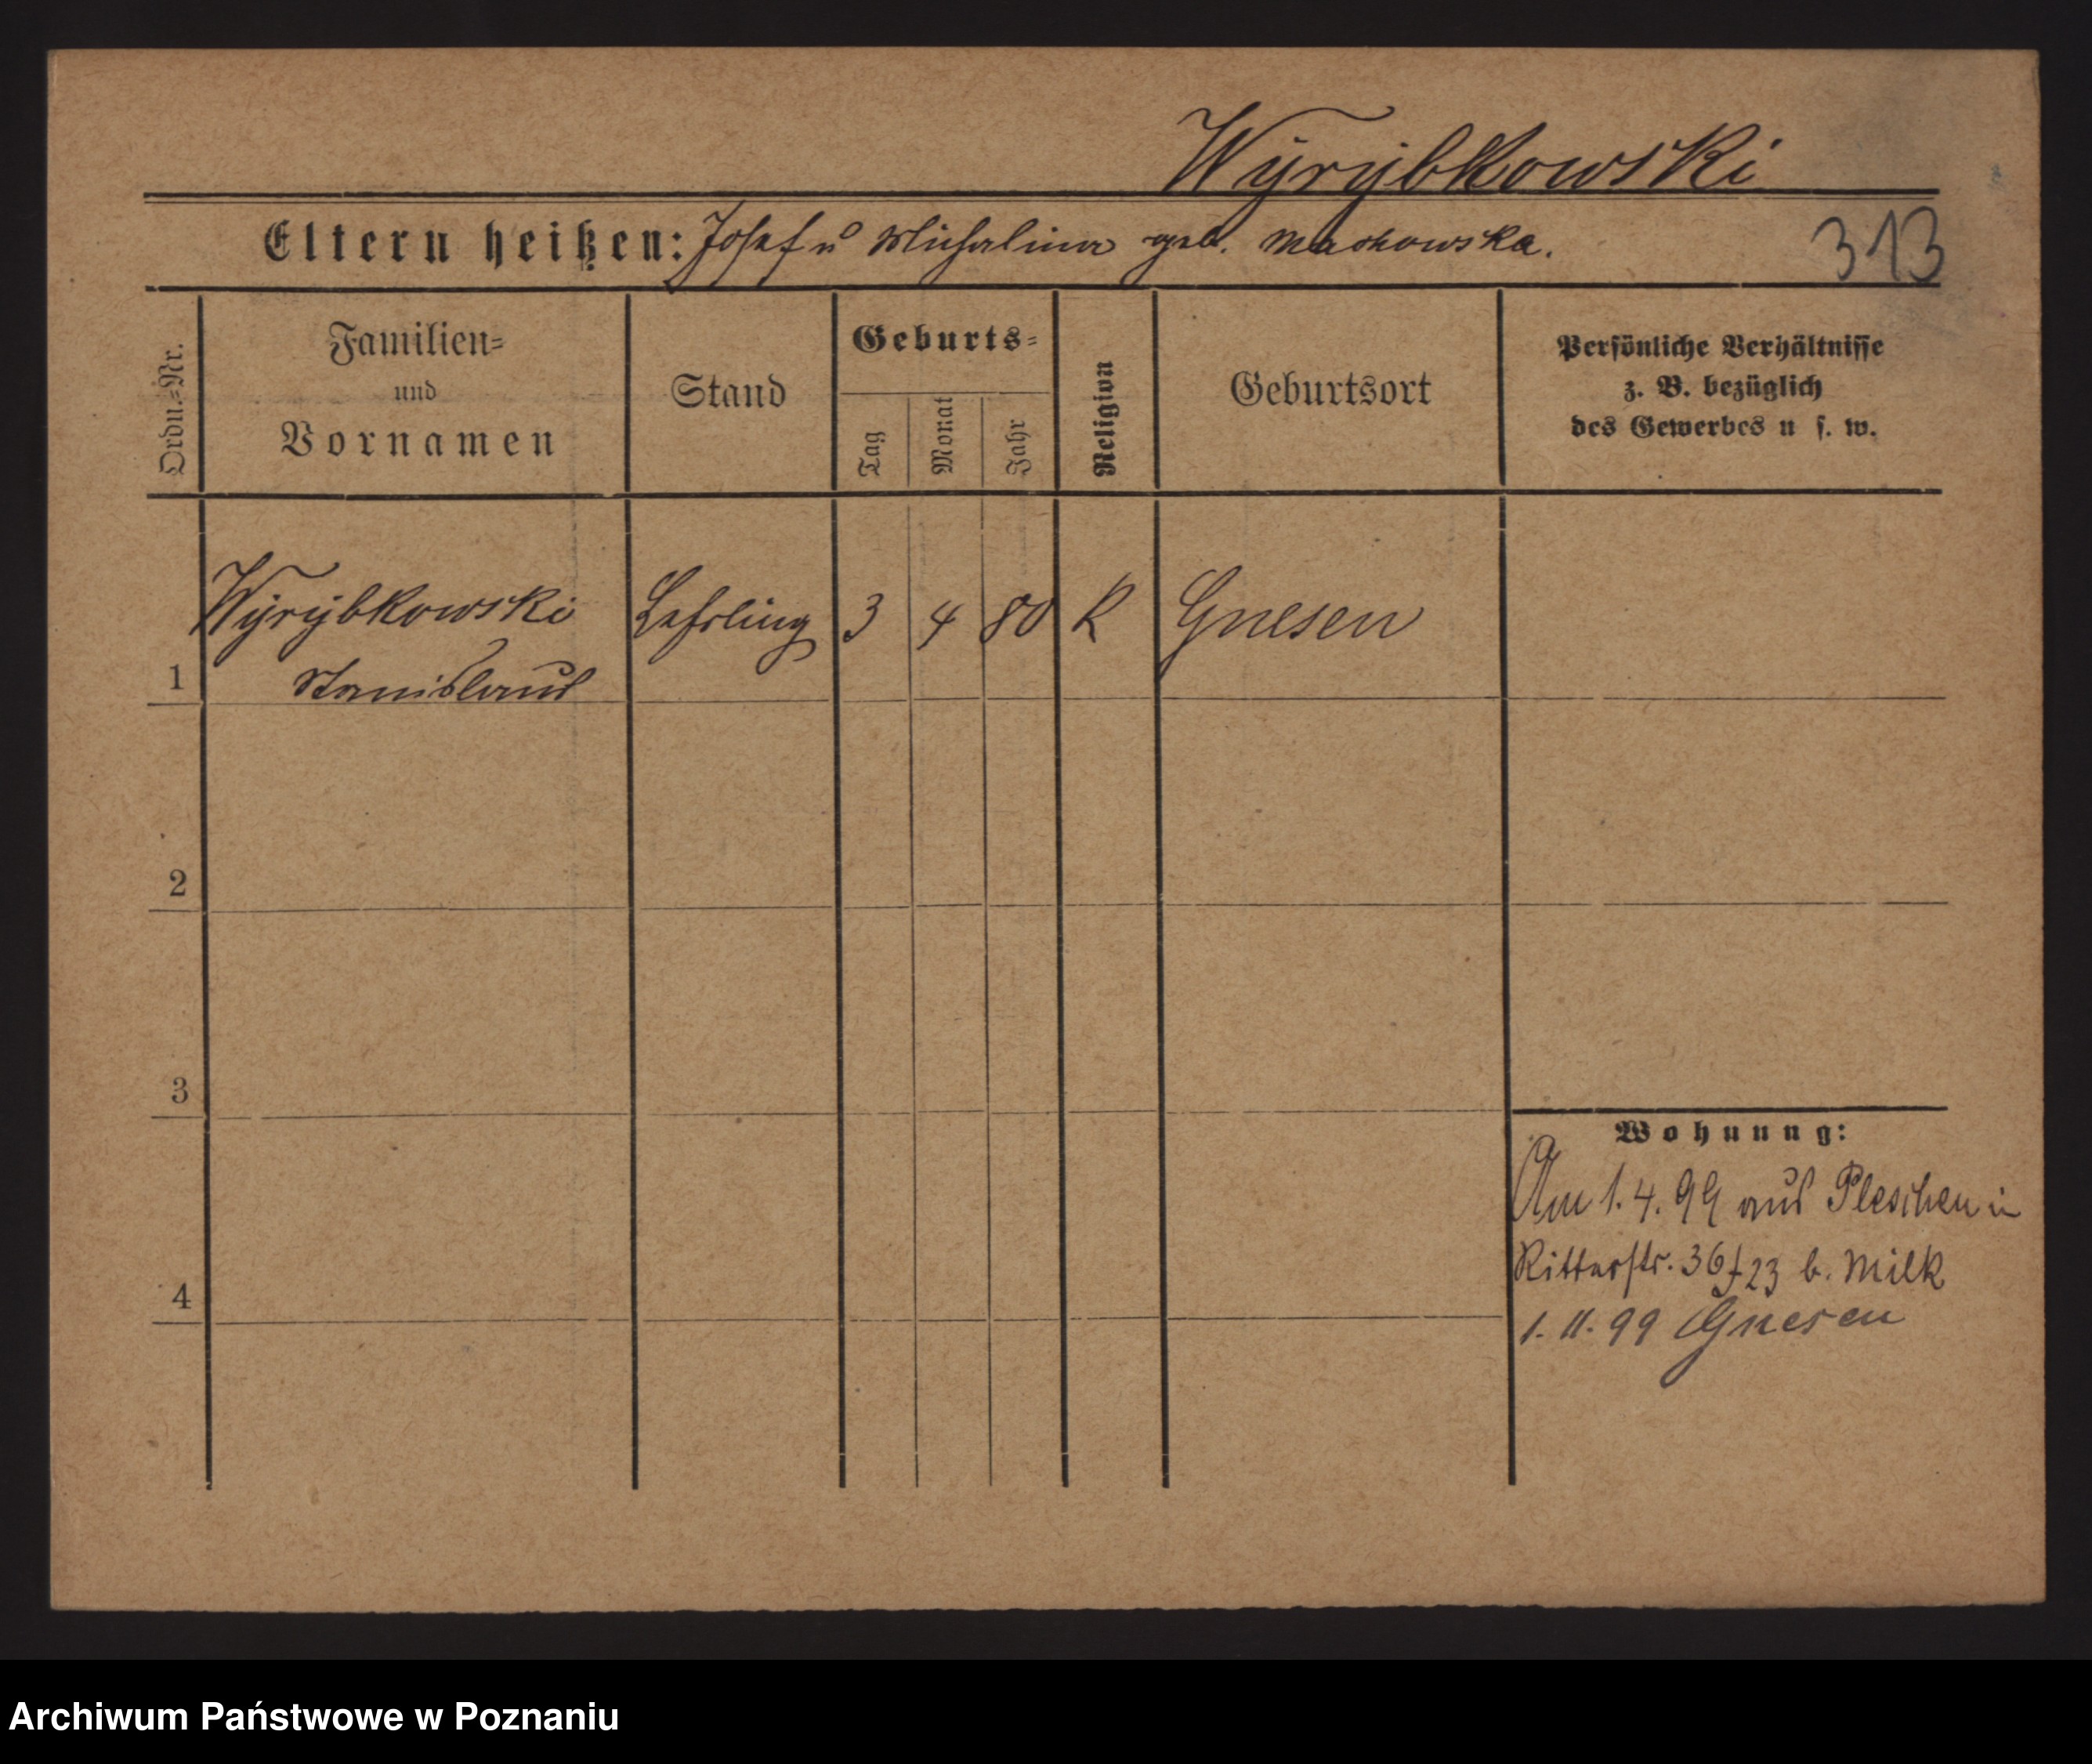 Wyrybkowski
Eltern heißen: Josef u Michalina geb. Maskowska.
313
Ordn.-Nr.
Familien-
und
Vornamen
Stand
Geburts-
Tag
Monat
Jahr
Religion
Geburtsort
Persönliche Verhältnisse
z. B. bezüglich
des Gewerbes u s. w.
Wyrybkowski Lehrling 3 4 80 K Gnesen
1 Stanislaus
2
3
4
Wohnung:
Am 1. 4. 99 aus Pleschen in
Ritterstr. 36/23 b. Milk
1. 11. 99 Gnesen
Archiwum Państwowe w Poznaniu